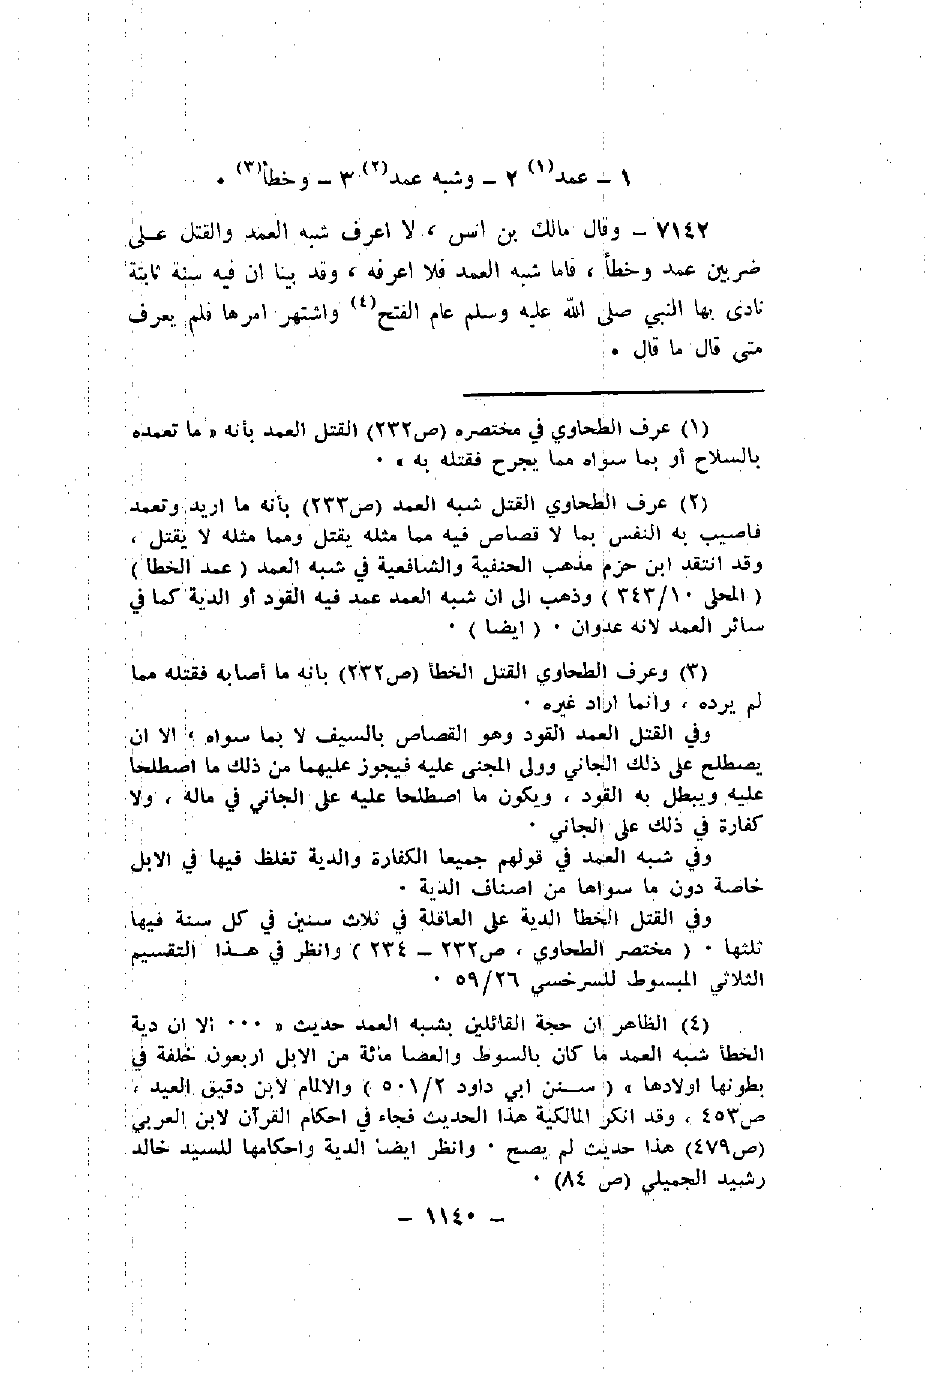 ١ – عمد(١) ٢ – وشبه عمد(٢) ٣ – وخطأ(٣) ٠
٧١٤٢ – وقال مالك بن انس ، لا اعرف شبه العمد والقتل على
ضربين عمد وخطأ ، فاما شبه العمد فلا اعرفه ، وقد بينا ان فيه سنة ثابتة
نادى بها النبي صلى الله عليه وسلم عام الفتح(٤) واشتهر امرها فلم يعرف
متى قال ما قال ٠
(١) عرف الطحاوي في مختصره (ص٢٣٢) القتل العمد بأنه « ما تعمده
بالسلاح أو بما سواه مما يجرح فقتله به » ٠
(٢) عرف الطحاوي القتل شبه العمد (ص٢٣٣) بأنه ما اريد وتعمد
فاصيب به النفس بما لا قصاص فيه مما مثله يقتل ومما مثله لا يقتل ،
وقد انتقد ابن حزم مذهب الحنفية والشافعية في شبه العمد ( عمد الخطا )
( المحلى ٣٤٣/١٠ ) وذهب الى ان شبه العمد عمد فيه القود أو الدية كما في
سائر العمد لانه عدوان ٠ ( ايضا ) ٠
(٣) وعرف الطحاوي القتل الخطأ (ص٢٣٢) بانه ما أصابه فقتله مما
لم يرده ، وانما اراد غيره ٠
وفي القتل العمد القود وهو القصاص بالسيف لا بما سواه ، الا ان
يصطلح على ذلك الجاني وولى المجنى عليه فيجوز عليهما من ذلك ما اصطلحا
عليه ويبطل به القود ، ويكون ما اصطلحا عليه على الجاني في ماله ، ولا
كفارة في ذلك على الجاني ٠
وفي شبه العمد في قولهم جميعا الكفارة والدية تغلظ فيها في الابل
خاصة دون ما سواها من اصناف الدية ٠
وفي القتل الخطأ الدية على العاقلة في ثلاث سنين في كل سنة فيها
ثلثها ٠ ( مختصر الطحاوي ، ص٢٣٢ – ٢٣٤ ) وانظر في هذا التقسيم
الثلاثي المبسوط للسرخسي ٥٩/٢٦ ٠
(٤) الظاهر ان حجة القائلين بشبه العمد حديث « ٠٠٠ الا ان دية
الخطأ شبه العمد ما كان بالسوط والعصا مائة من الابل اربعون خلفة في
بطونها اولادها » ( سنن ابي داود ٥٠١/٢ ) والالمام لابن دقيق العيد ،
ص٤٥٣ ، وقد انكر المالكية هذا الحديث فجاء في احكام القرآن لابن العربي
(ص٤٧٩) هذا حديث لم يصح ٠ وانظر ايضا الدية واحكامها للسيد خالد
رشيد الجميلي (ص ٨٤) ٠
– ١١٤٠ –